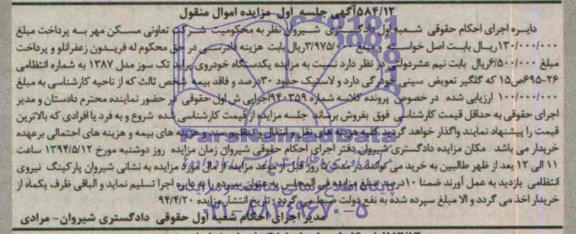 ۵۸۴/۱۲ آگهی جلسه اول مزایده اموال منقول
دایره اجرای احکام حقوقی شعبه اول دادگستری شیروان نظر به محکومیت شرکت تعاونی مسکن مهر به پرداخت مبلغ
۱۳۰/۰۰۰/۰۰۰ ریال بابت اصل خواسته و مبلغ ۳/۹۷۵/۰۰۰ ریال بابت هزینه دادرسی در حق محکوم له فریدون زعفرانلو و پرداخت
مبلغ ۶/۵۰۰/۰۰۰ ریال بابت نیم عشر دولتی در نظر دارد نسبت به مزایده یکدستگاه خودروی پراید تک سوز مدل ۱۳۸۷ به شماره انتظامی
۲۶-۶۹۵ص۱۵ که گلگیر تعویض سینی خوردگی دارد و لاستیک حدود ۳۰درصد و فاقد بیمه شخص ثالث که از ناحیه کارشناسی به مبلغ
۱۰۰/۰۰۰/۰۰۰ ارزیابی شده در خصوص پرونده کلاسه شماره ۹۴۰۳۵۹ اجرایی ش اول حقوقی در حضور نماینده محترم دادستان و مدیر
اجرای حقوقی به حداقل قیمت کارشناسی فوق بفروش برساند جلسه مزایده از قیمت کارشناسی شده شروع و به فرد یا افرادی که بالاترین
قیمت را پیشنهاد نمایند واگذار خواهد گردید کلیه هزینه های نقل و انتقال و تنظیم سند و هزینه های بیمه و هزینه های احتمالی برعهده
خریدار می باشد مکان مزایده دادگستری شیروان دفتر اجرای احکام حقوقی شیروان زمان مزایده روز دوشنبه مورخ ۱۳۹۴/۵/۱۲ ساعت
۱۱ الی ۱۲ بعد از ظهر طالبین به خرید می توانند در مدت ۵ روز قبل از موعد مزایده از مال مورد مزایده به نشانی شیروان پارکینگ نیروی
انتظامی بازدید به عمل آورند ضمنا ۱۰درصد مبلغ مزایده فی المجلس به عنوان سپرده را به دایره اجرا تسلیم نماید و الباقی ظرف یکماه از
خریدار اخذ می گردد و الا مبلغ سپرده شده به نفع دولت ضبط می گردد: تاریخ انتشار مزایده ۹۴/۴/۲۰
مدیر اجرای احکام شعبه اول حقوقی دادگستری شیروان- مرادی